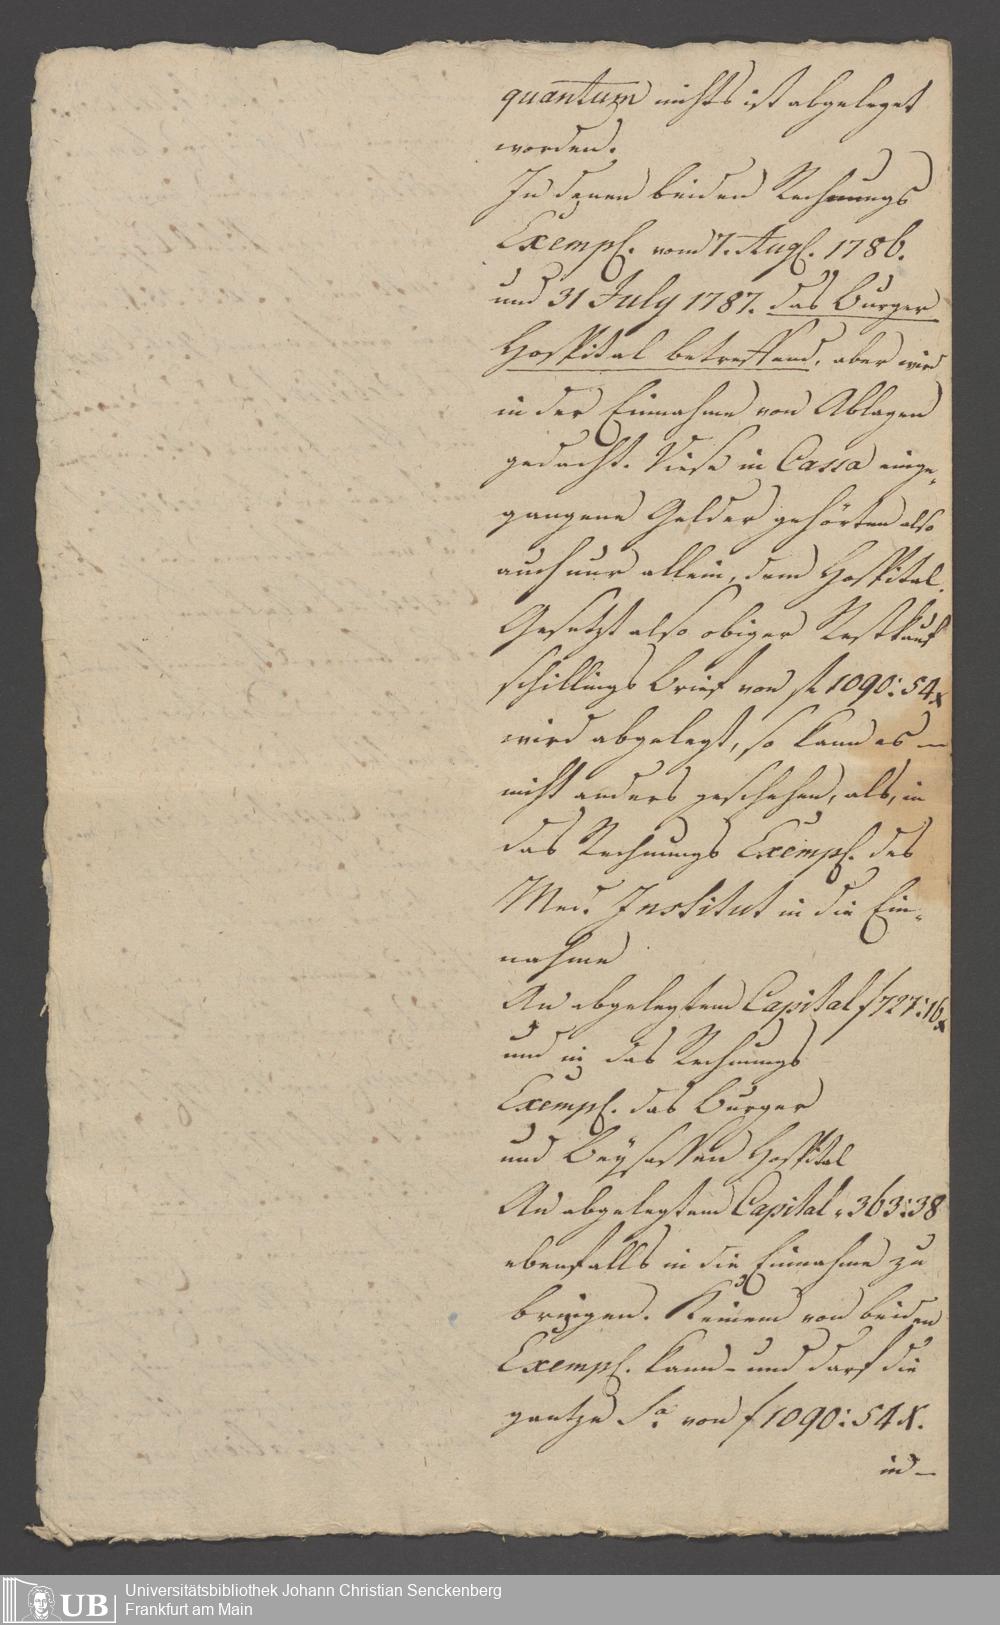 quantum nichts ist abgeleget
worden.
In denen beiden Rechnungs
Exempl. vom 7. Augl. 1786.
und 31 July 1787. das Burger
Hospital betreffend, aber wird
in der Einnahme von Ablagen
gedacht. Diese in Cassa einge„
gangene Gelder gehörten also
auch nur allein, dem Hospital.
Gesetzt also obiger Restkauf
schillings Brief von f 1090: 54 x
wird abgelegt, so kann es –
nicht anders geschehen, als, in
das Rechnungs Exempl. des
Med. Institut in die Ein„
nahme
An abgelegtem Capital f 727: 16 x
und in das Rechnungs
Exempl. das Burger
und Beysassen Hospital
An abgelegtem Capital „ 363: 38
ebenfalls in die Einnahme zu
bringen. Keinem von beiden
Exempl. kann – und darf die
gantze Sa. von f 1090: 54 X.
in –
Universitätsbibliothek Johann Christian Senckenberg
Frankfurt am Main
UB